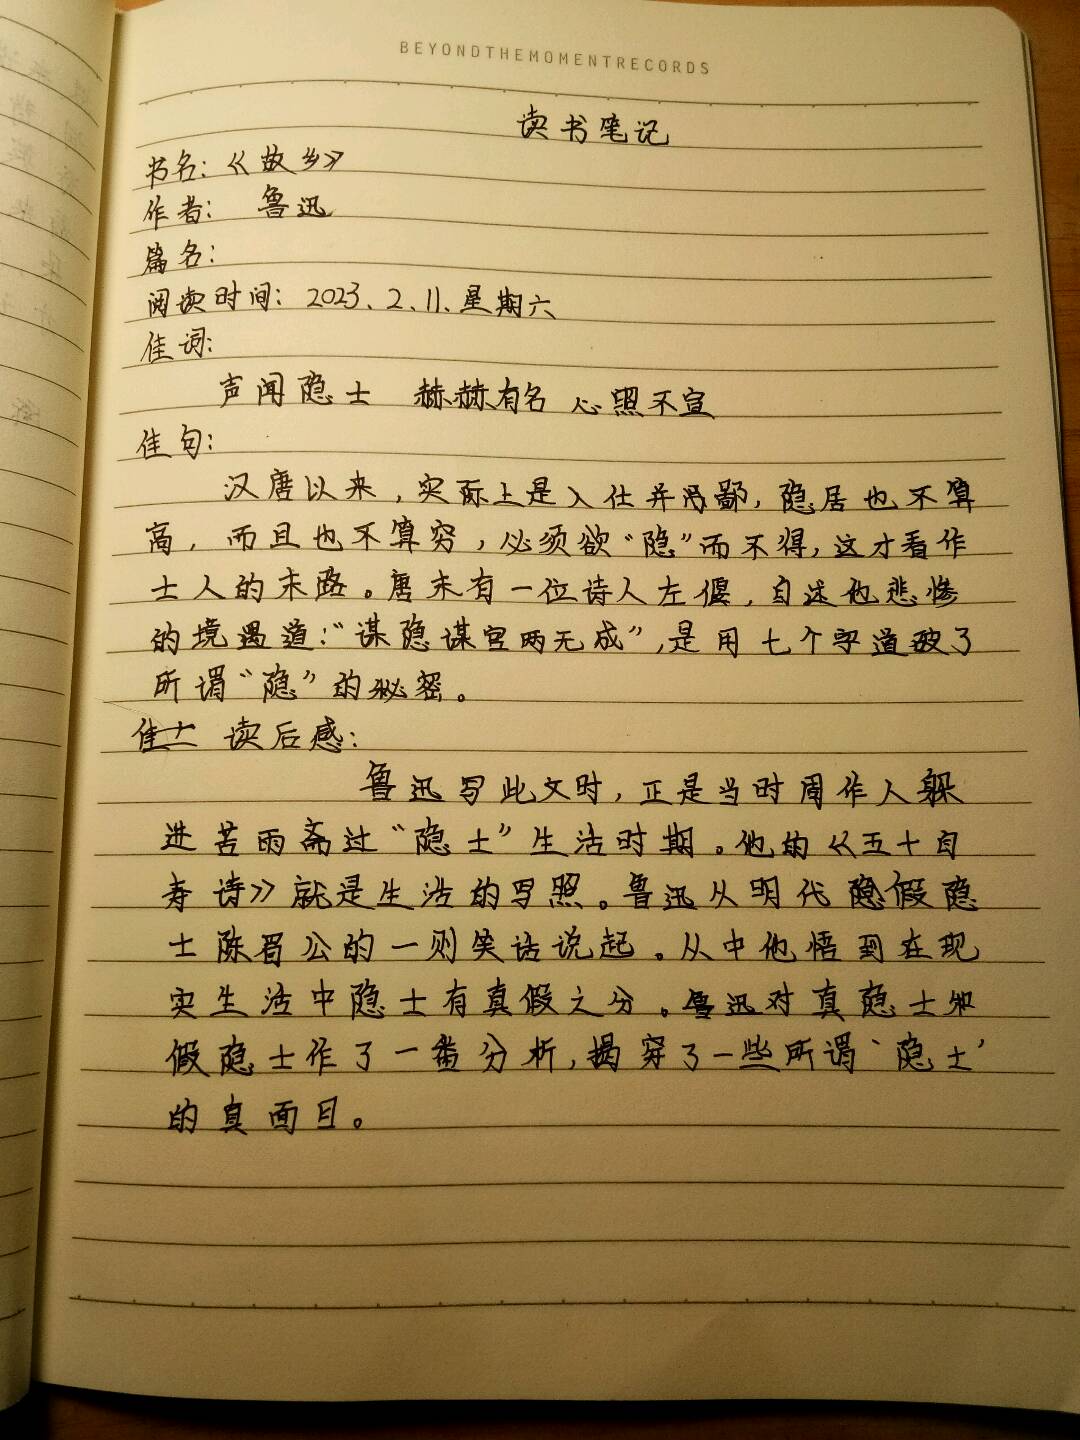 BEYONDTHEMOMENTRECORDS
读书笔记
书名:《故乡》
作者: 鲁迅
篇名:
阅读时间: 2023、2、11、星期六
佳词:
声闻隐士 赫赫有名 心照不宣
佳句:
汉唐以来,实际上是入仕并不鄙,隐居也不算
高,而且也不算穷,必须欲“隐”而不得,这才看作
士人的末路。唐末有一位诗人左偃,自述他悲惨
的境遇道:“谋隐谋官两无成”,是用七个字道破了
所谓“隐”的秘密。
读后感:
鲁迅写此文时,正是当时周作人躲
进苦雨斋过“隐士”生活时期。他的《五十自
寿诗》就是生活的写照。鲁迅从明代隐假隐
士陈眉公的一则笑话说起。从中他悟到在现
实生活中隐士有真假之分。鲁迅对真隐士和
假隐士作了一番分析,揭穿了一些所谓‘隐士’
的真面目。